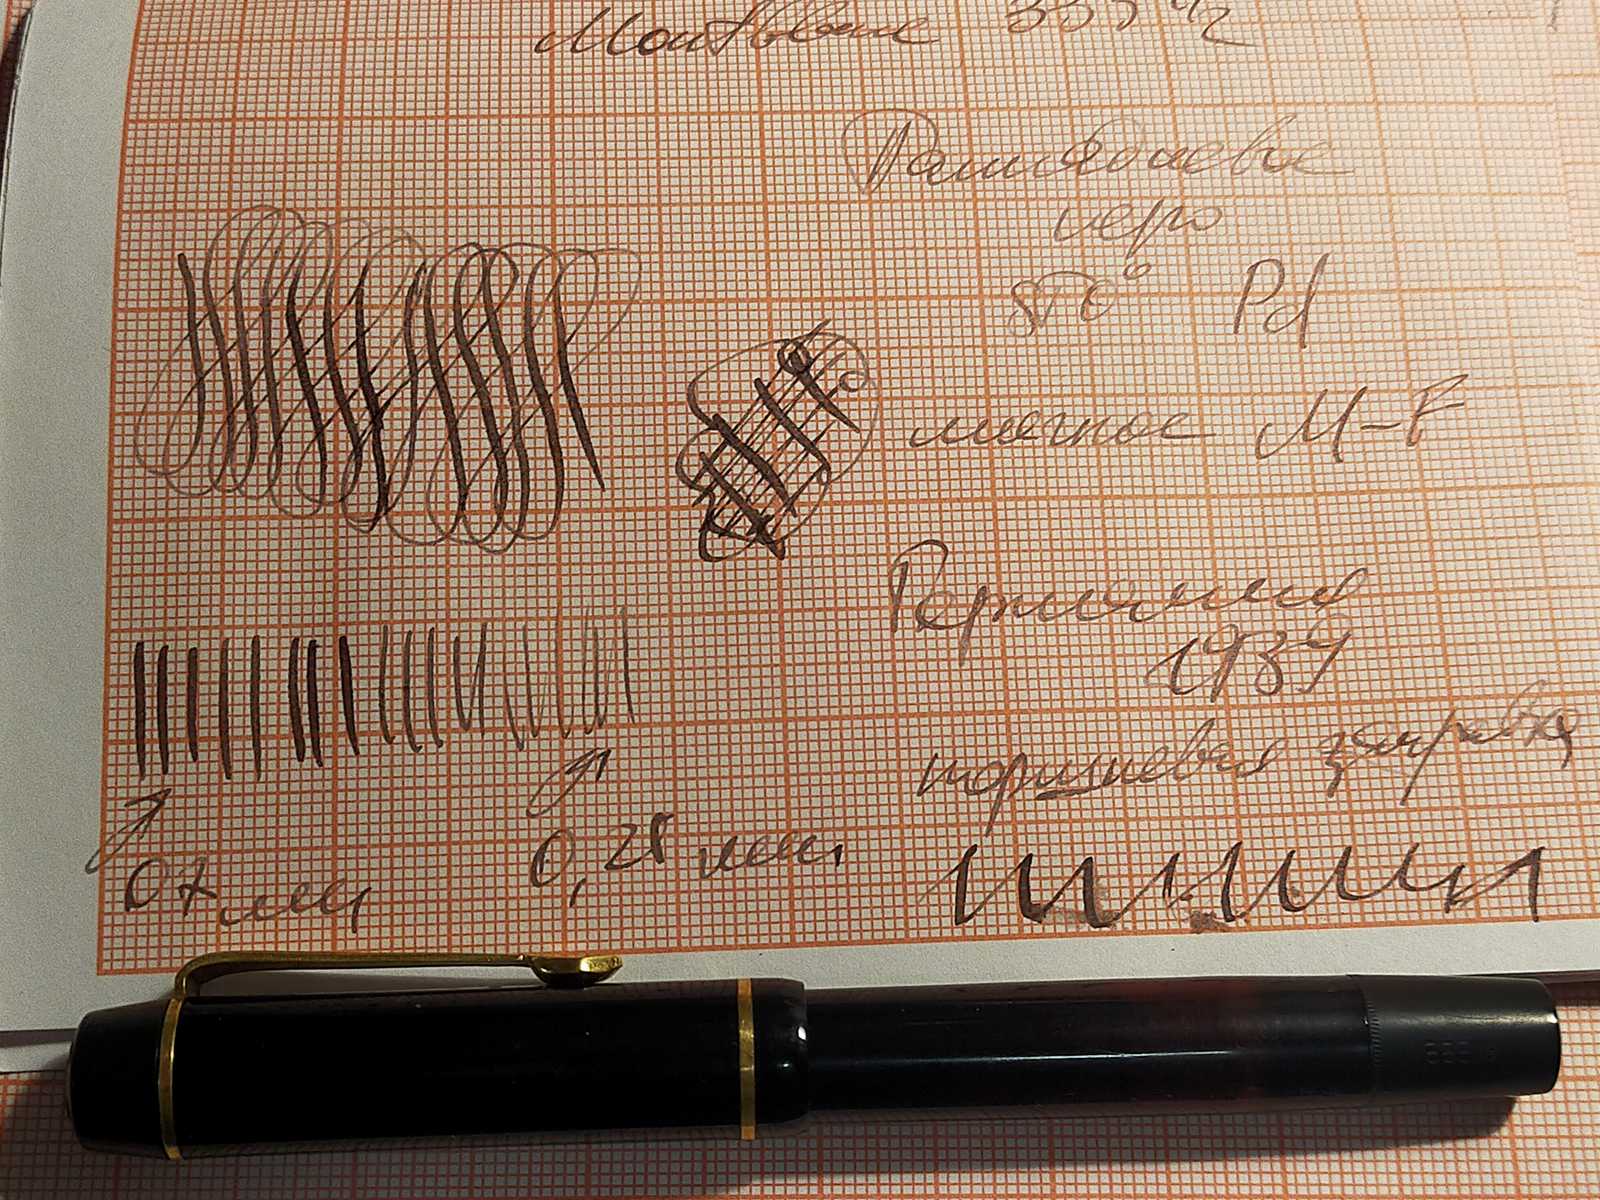 Монтблане 333 1/2
Палладиевое
перо
5П0° Pd
мягкое M-F
Германия
1937
поршневая заправка
0,25 мм
07 мм
333